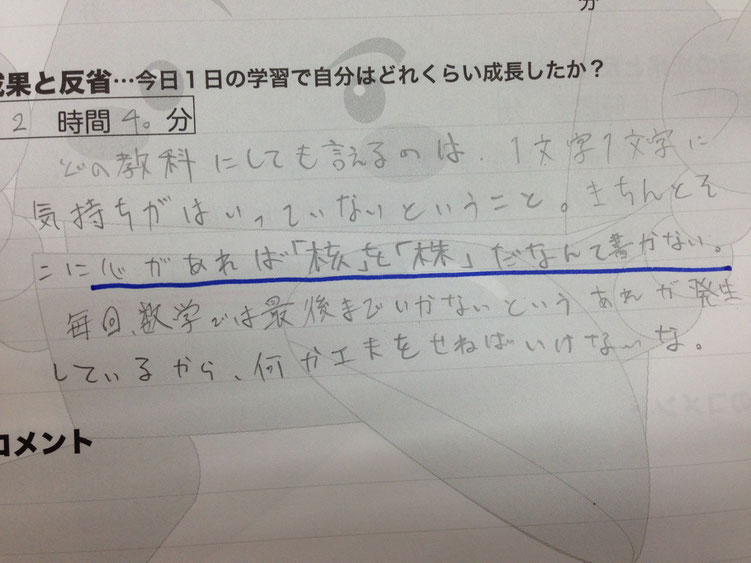 分
成果と反省…今日1日の学習で自分はどれくらい成長したか？
2 時間 40 分
どの教科にしても言えるのは、1文字1文字に
気持ちがはいっていないということ。きちんとそ
こに心があれば「核」を「株」だなんて書かない。
毎回、数学では最後までいかないという あれが発生
しているから、何か工夫をせねばいけないな。
コメント